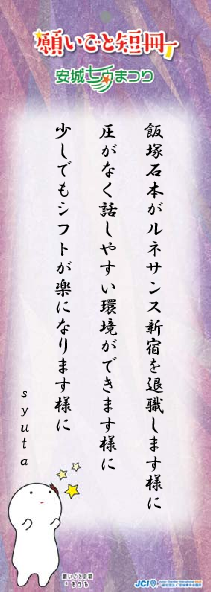 願いごと短冊
安城七夕まつり
飯塚石本がルネサンス新宿を退職します様に
圧がなく話しやすい環境ができます様に
少しでもシフトが楽になります様に
syuta
JCI